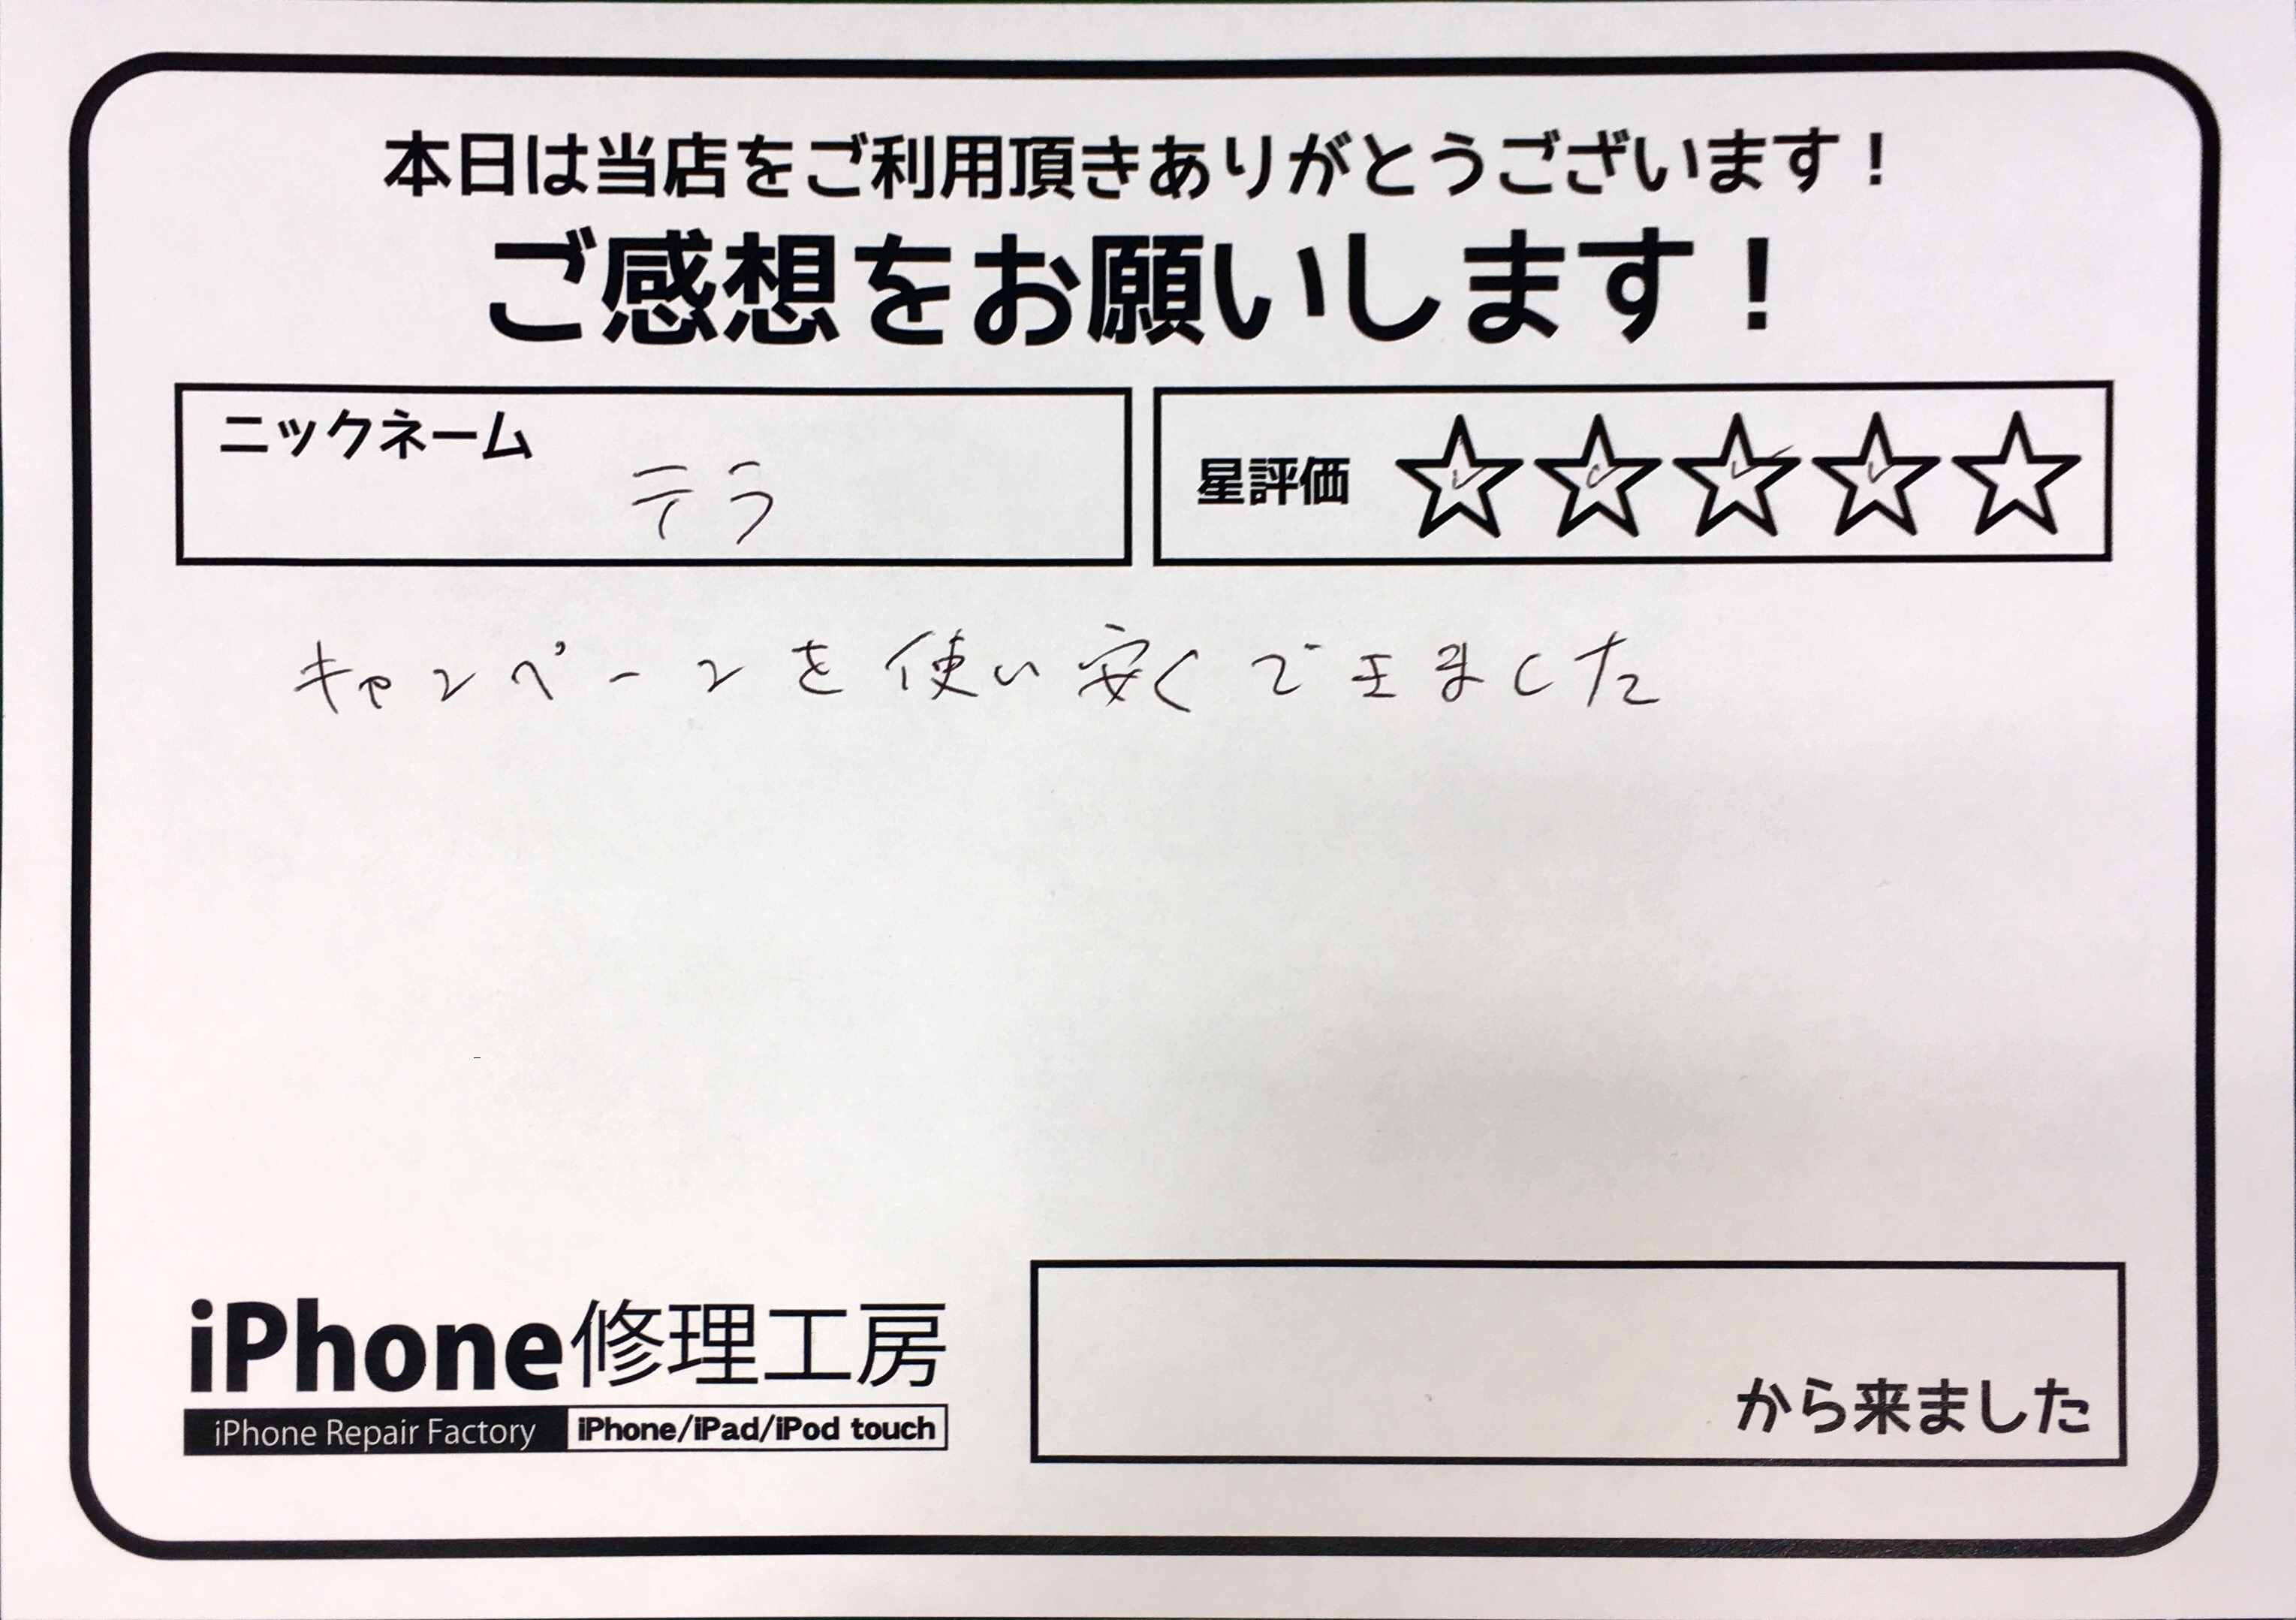 本日は当店をご利用頂きありがとうございます！
ご感想をお願いします！
ニックネーム
テラ
星評価 ☆☆☆☆☆
キャンペーンを使い安くできました
iPhone修理工房
iPhone Repair Factory iPhone/iPad/iPod touch
から来ました